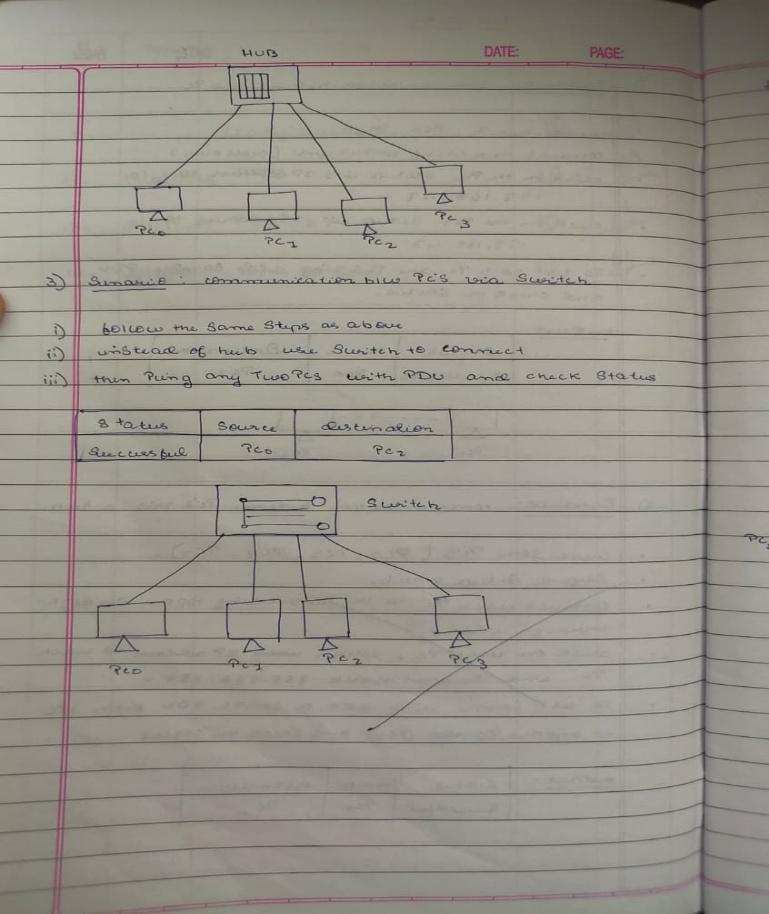 HUB
DATE: PAGE:
PC0
PC1
PC2
PC3
3) Senario : communication b/w PC's via Switch
i) follow the same steps as above
ii) instead of hub use Switch to connect
iii) then Ping any Two PCs with PDU and check Status
Status Source destination
Successful PC0 PC2
Switch
PC0
PC1
PC2
PC3